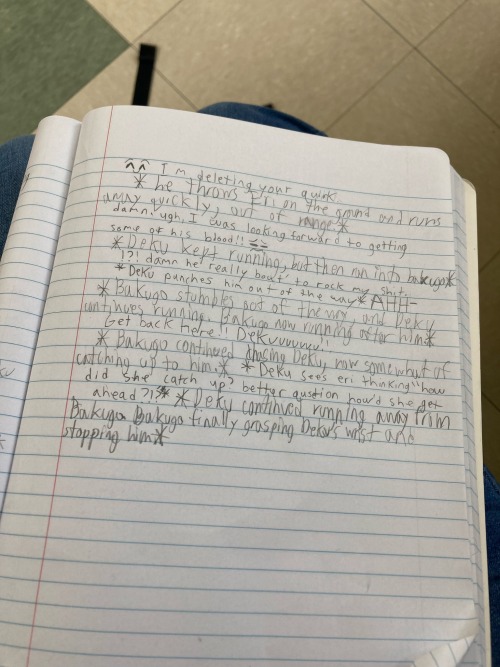 ^^ I'm deleting your quirk.
* he throws Eri on the ground and runs
away quickly, out of range *
damn! ugh, I was looking forward to getting
some of his blood!!
* Deku kept running, but then ran into bakugo *
!?! damn he really bout to rock my shit
* Deku punches him out of the way * AHH-
* Bakugo stumbles out of the way and Deku
continues running. Bakugo now running after him *
Get back here!! Dekuuuuuu!!
* Bakugo continued chasing Deku, now somewhat of
catching up to him. * * Deku sees eri thinking "how
did she catch up? better qustion how'd she get
ahead?!?" * * Deku continued running away from
Bakugo. Bakugo finally grasping Deku's wrist and
stopping him *